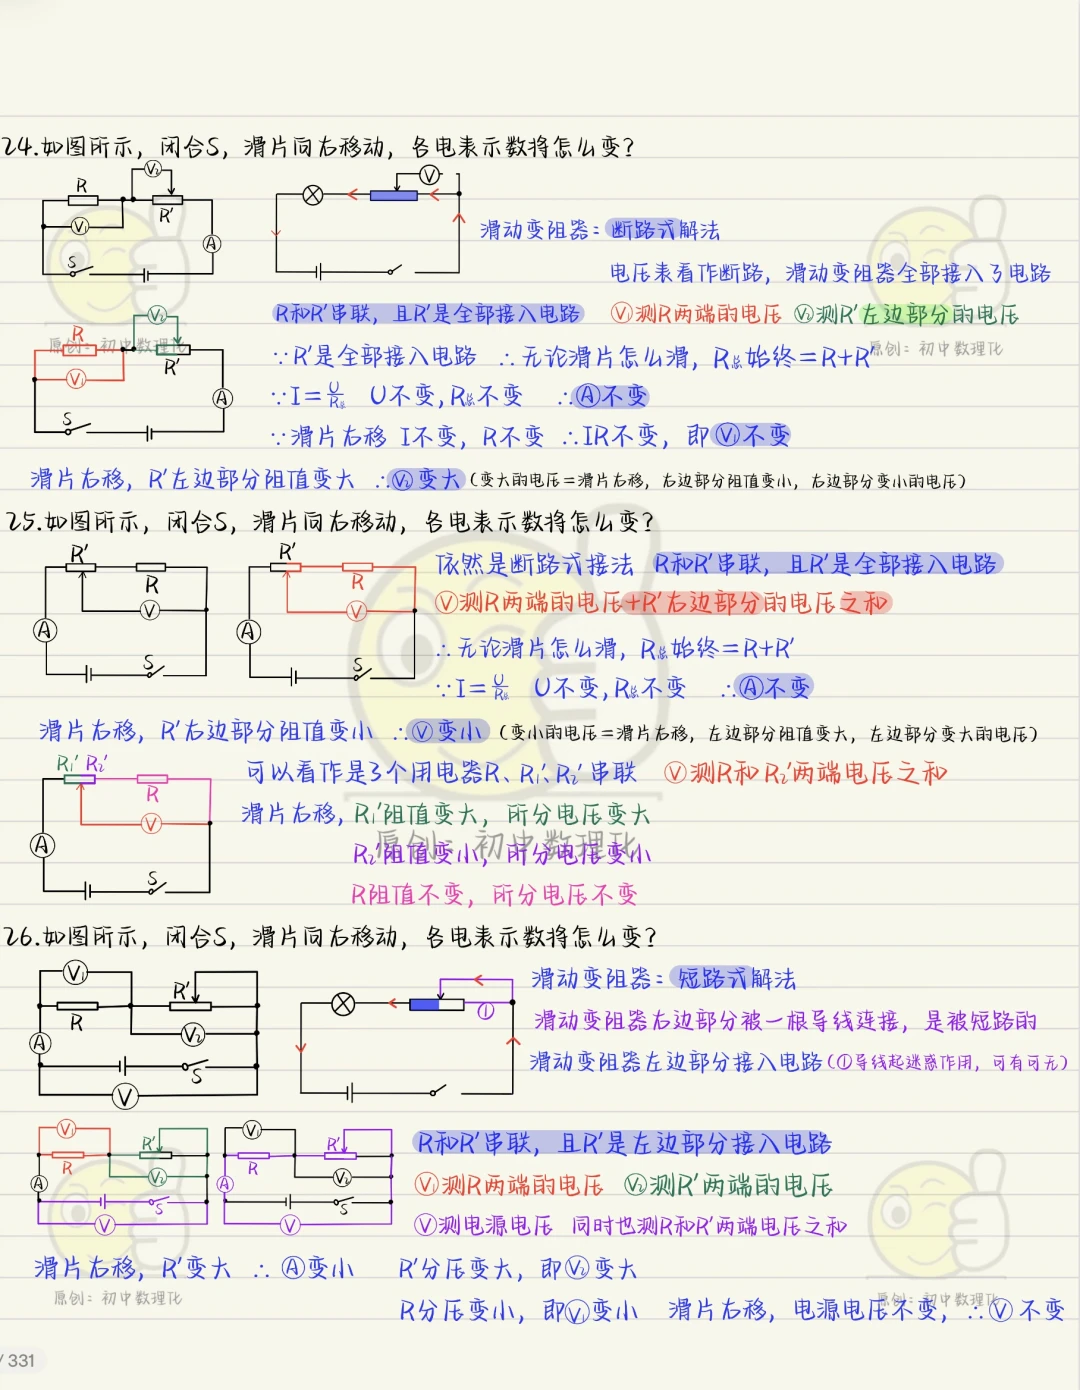 24.如图所示，闭合S，滑片向右移动，各电表示数将怎么变？
V₂
R
R′
V₁
A
S
V
滑动变阻器：断路式解法
电压表看作断路，滑动变阻器全部接入了电路
R和R′串联，且R′是全部接入电路 V₁测R两端的电压 V₂测R′左边部分的电压
V₂
R
R′
V₁
A
S
原创：初中数理化
原创：初中数理化
∵R′是全部接入电路 ∴无论滑片怎么滑，R总始终=R+R′
∵I=U/R总 U不变，R总不变 ∴A不变
∵滑片右移 I不变，R不变 ∴IR不变，即V₁不变
滑片右移，R′左边部分阻值变大 ∴V₂变大（变大的电压=滑片右移，右边部分阻值变小，右边部分变小的电压）
25.如图所示，闭合S，滑片向右移动，各电表示数将怎么变？
R′
R
V
A
S
R′
R
V
A
S
依然是断路式接法 R和R′串联，且R′是全部接入电路
V测R两端的电压+R′右边部分的电压之和
∴无论滑片怎么滑，R总始终=R+R′
∵I=U/R总 U不变，R总不变 ∴A不变
滑片右移，R′右边部分阻值变小 ∴V变小（变小的电压=滑片右移，左边部分阻值变大，左边部分变大的电压）
R₁′ R₂′
R
V
A
S
可以看作是3个用电器R、R₁′、R₂′串联 V测R和R₂′两端电压之和
滑片右移，R₁′阻值变大，所分电压变大
原创：初中数理化
R₂′阻值变小，所分电压变小
R阻值不变，所分电压不变
26.如图所示，闭合S，滑片向右移动，各电表示数将怎么变？
V₁
R′
R
V₂
A
S
V
①
滑动变阻器：短路式解法
滑动变阻器右边部分被一根导线连接，是被短路的
滑动变阻器左边部分接入电路（①导线起迷惑作用，可有可无）
V₁
R′
R
V₂
A
S
V
V₁
R′
R
V₂
A
S
V
R和R′串联，且R′是左边部分接入电路
V₁测R两端的电压 V₂测R′两端的电压
V测电源电压 同时也测R和R′两端电压之和
滑片右移，R′变大 ∴A变小 R′分压变大，即V₂变大
原创：初中数理化
原创：初中数理化
R分压变小，即V₁变小 滑片右移，电源电压不变，∴V不变
/ 331